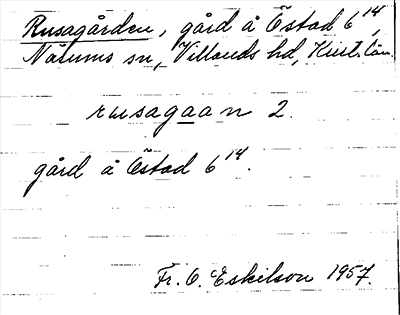 Rusagården, gård å Östad 6¹⁴,
Näsums sn, Villands hd, Krist. län.
rusagaan 2.
gård å Östad 6¹⁴.
Fr. O. Eskilson 1957.